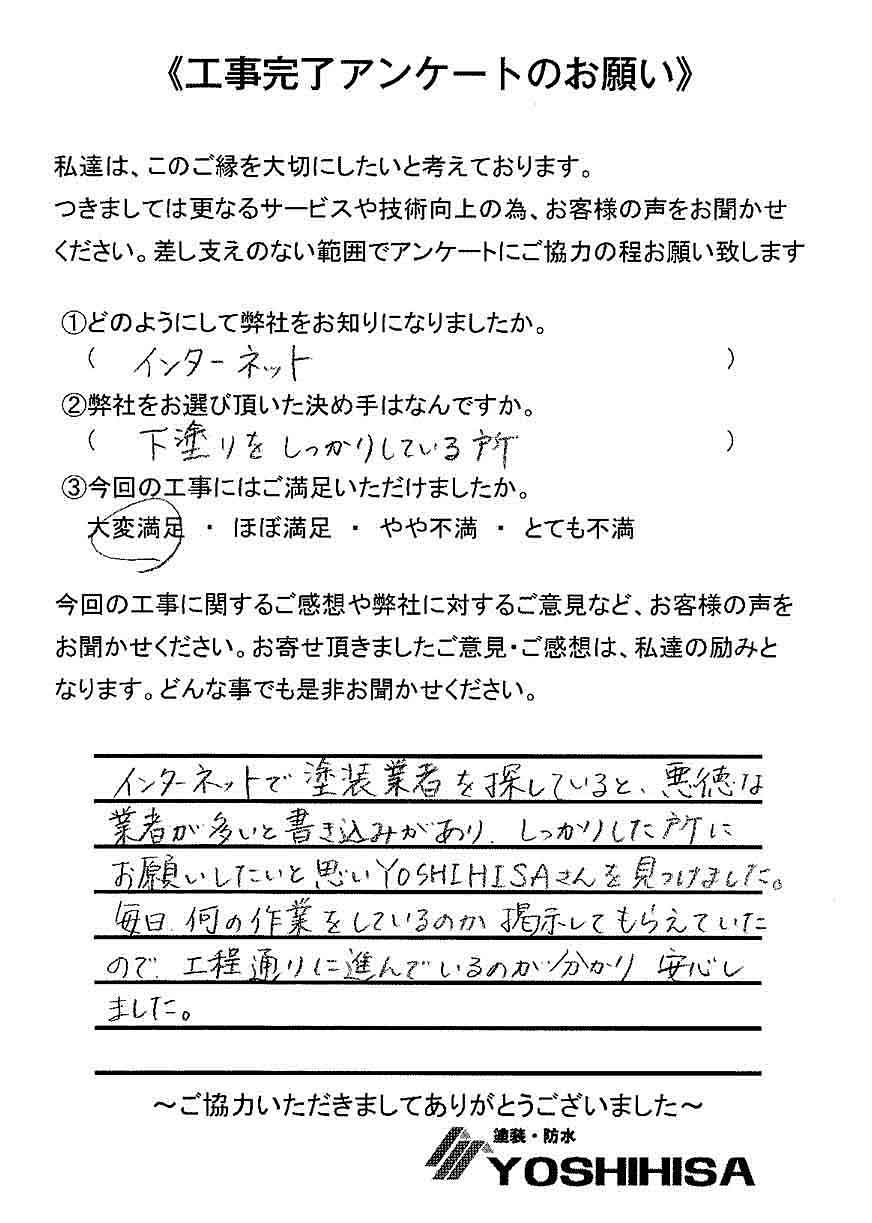 《工事完了アンケートのお願い》
私達は、このご縁を大切にしたいと考えております。
つきましては更なるサービスや技術向上の為、お客様の声をお聞かせ
ください。差し支えのない範囲でアンケートにご協力の程お願い致します
①どのようにして弊社をお知りになりましたか。
( インターネット )
②弊社をお選び頂いた決め手はなんですか。
( 下塗りをしっかりしている所 )
③今回の工事にはご満足いただけましたか。
大変満足 ・ ほぼ満足 ・ やや不満 ・ とても不満
今回の工事に関するご感想や弊社に対するご意見など、お客様の声を
お聞かせください。お寄せ頂きましたご意見・ご感想は、私達の励みと
なります。どんな事でも是非お聞かせください。
インターネットで塗装業者を探していると、悪徳な
業者が多いと書き込みがあり、しっかりした所に
お願いしたいと思いYOSHIHISAさんを見つけました。
毎日、何の作業をしているのか掲示してもらえていた
ので、工程通りに進んでいるのが分かり 安心し
ました。
～ご協力いただきましてありがとうございました～
塗装・防水
YOSHIHISA